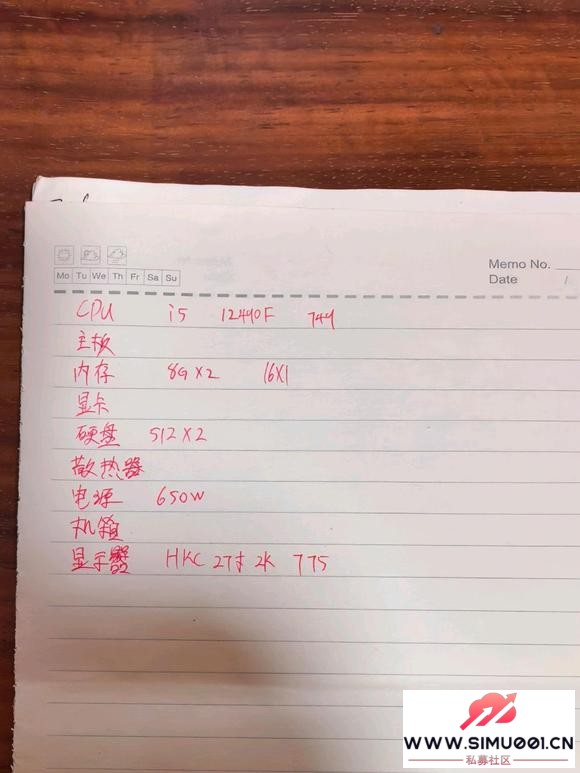 Memo No.
Mo Tu We Th Fr Sa Su
Date /
CPU i5 12490F 749
主板
内存 8G×2 16×1
显卡
硬盘 512×2
散热器
电源 650W
机箱
显示器 HKC 27寸 2K 775
WWW.SIMU001.CN
私募社区